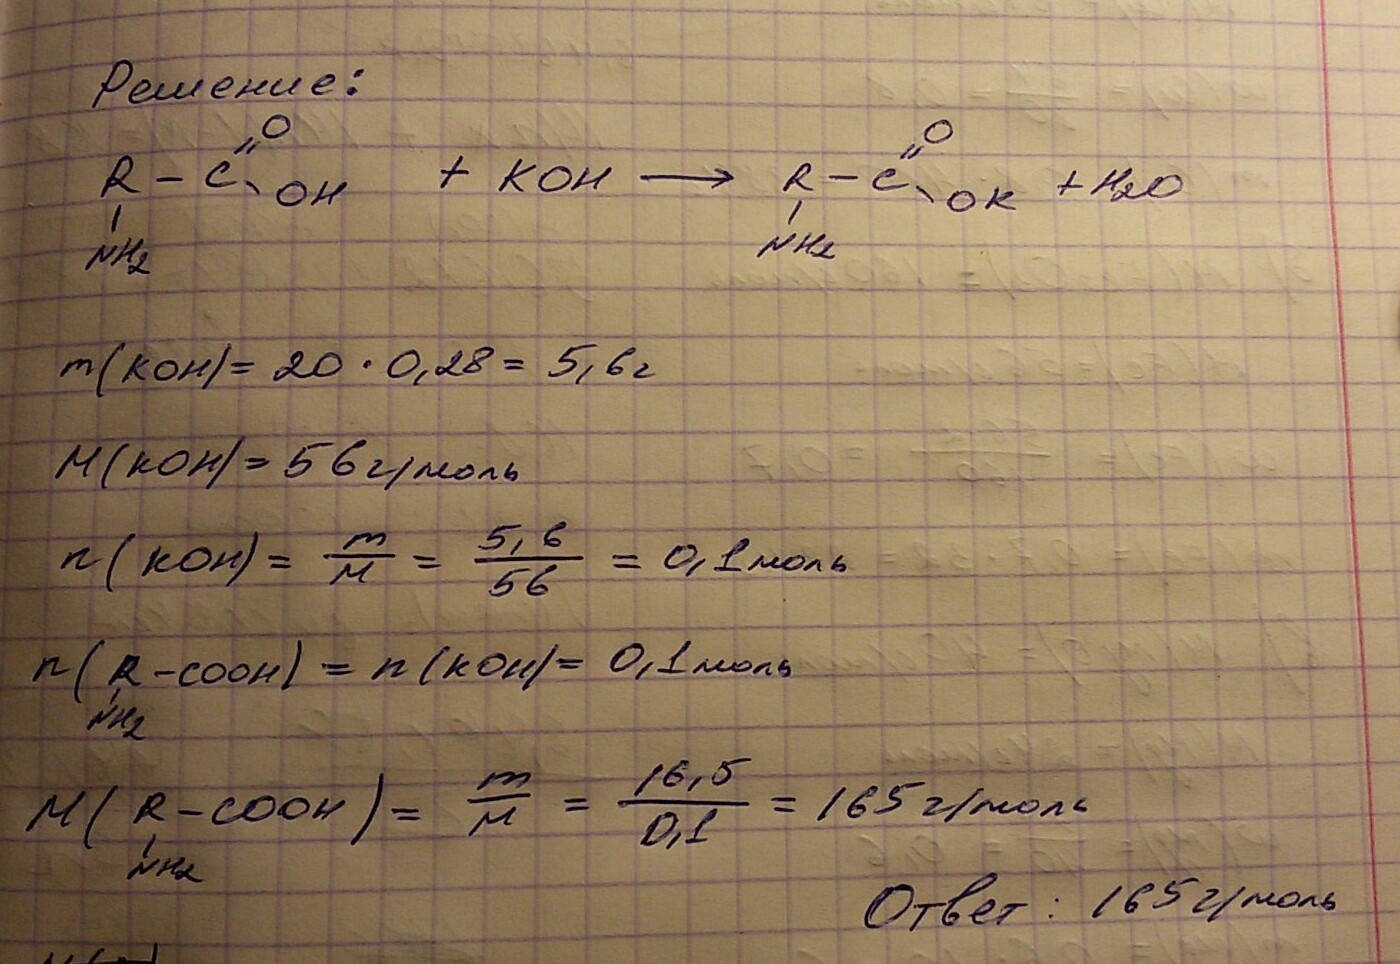 Решение:
R – C =O – OH + KOH ⟶ R – C =O – OK + H2O
NH2 NH2
m(KOH) = 20 · 0,28 = 5,6г
M(KOH) = 56г/моль
n(KOH) = m/M = 5,6/56 = 0,1моль
n(R-COOH) = n(KOH) = 0,1моль
NH2
M(R-COOH) = m/M = 16,5/0,1 = 165г/моль
NH2
Ответ: 165г/моль